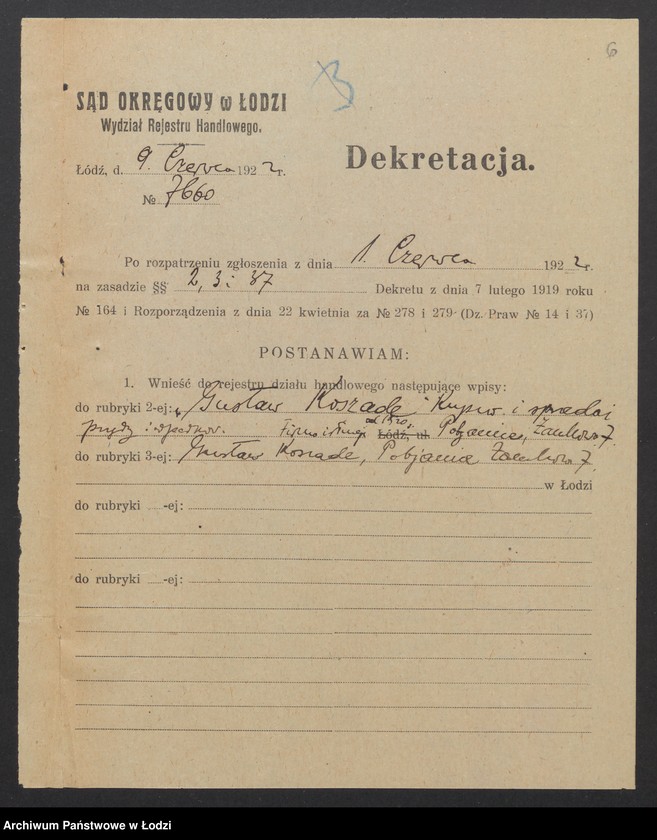 6
SĄD OKRĘGOWY w ŁODZI
Wydział Rejestru Handlowego.
Dekretacja.
Łódź, d. 9. Czerwca 1922 r.
№ 7660
Po rozpatrzeniu zgłoszenia z dnia 1. Czerwca 1922 r.
na zasadzie §§ 2, 3 i 37 Dekretu z dnia 7 lutego 1919 roku
№ 164 i Rozporządzenia z dnia 22 kwietnia za № 278 i 279 (Dz. Praw № 14 i 37)
POSTANAWIAM:
1. Wnieść do rejestru działu handlowego następujące wpisy:
do rubryki 2-ej: „Gustaw Koszade" Kupno i sprzedaż
od 1920 r.
Firma istnieje Łódź, ul. Pabjanice, Zamkowa 7.
do rubryki 3-ej: Gustaw Koszade, Pabjanice Zamkowa 7.
w Łodzi
do rubryki -ej:
do rubryki -ej:
Archiwum Państwowe w Łodzi